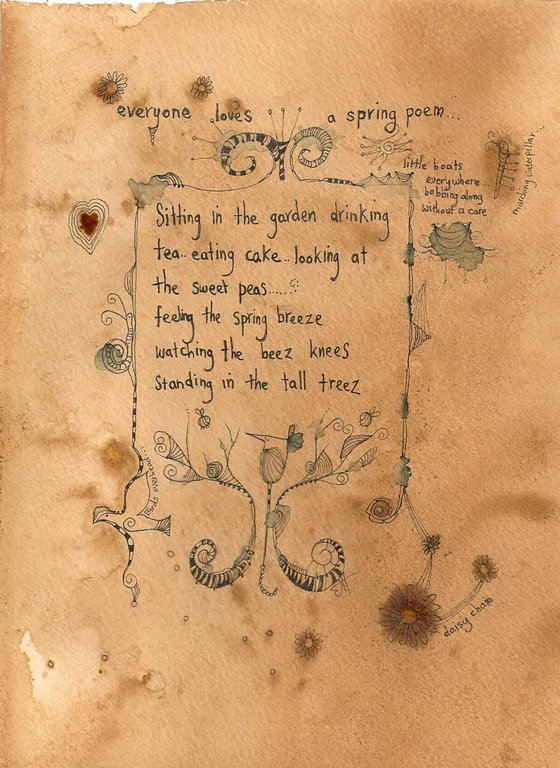 everyone loves a spring poem...
little boats
everywhere...
bobbing along
without a care
marching caterpillar
Sitting in the garden drinking
tea.. eating cake.. looking at
the sweet peas......
feeling the spring breeze
watching the beez knees
standing in the tall treez
birds overhead...
daisy chain